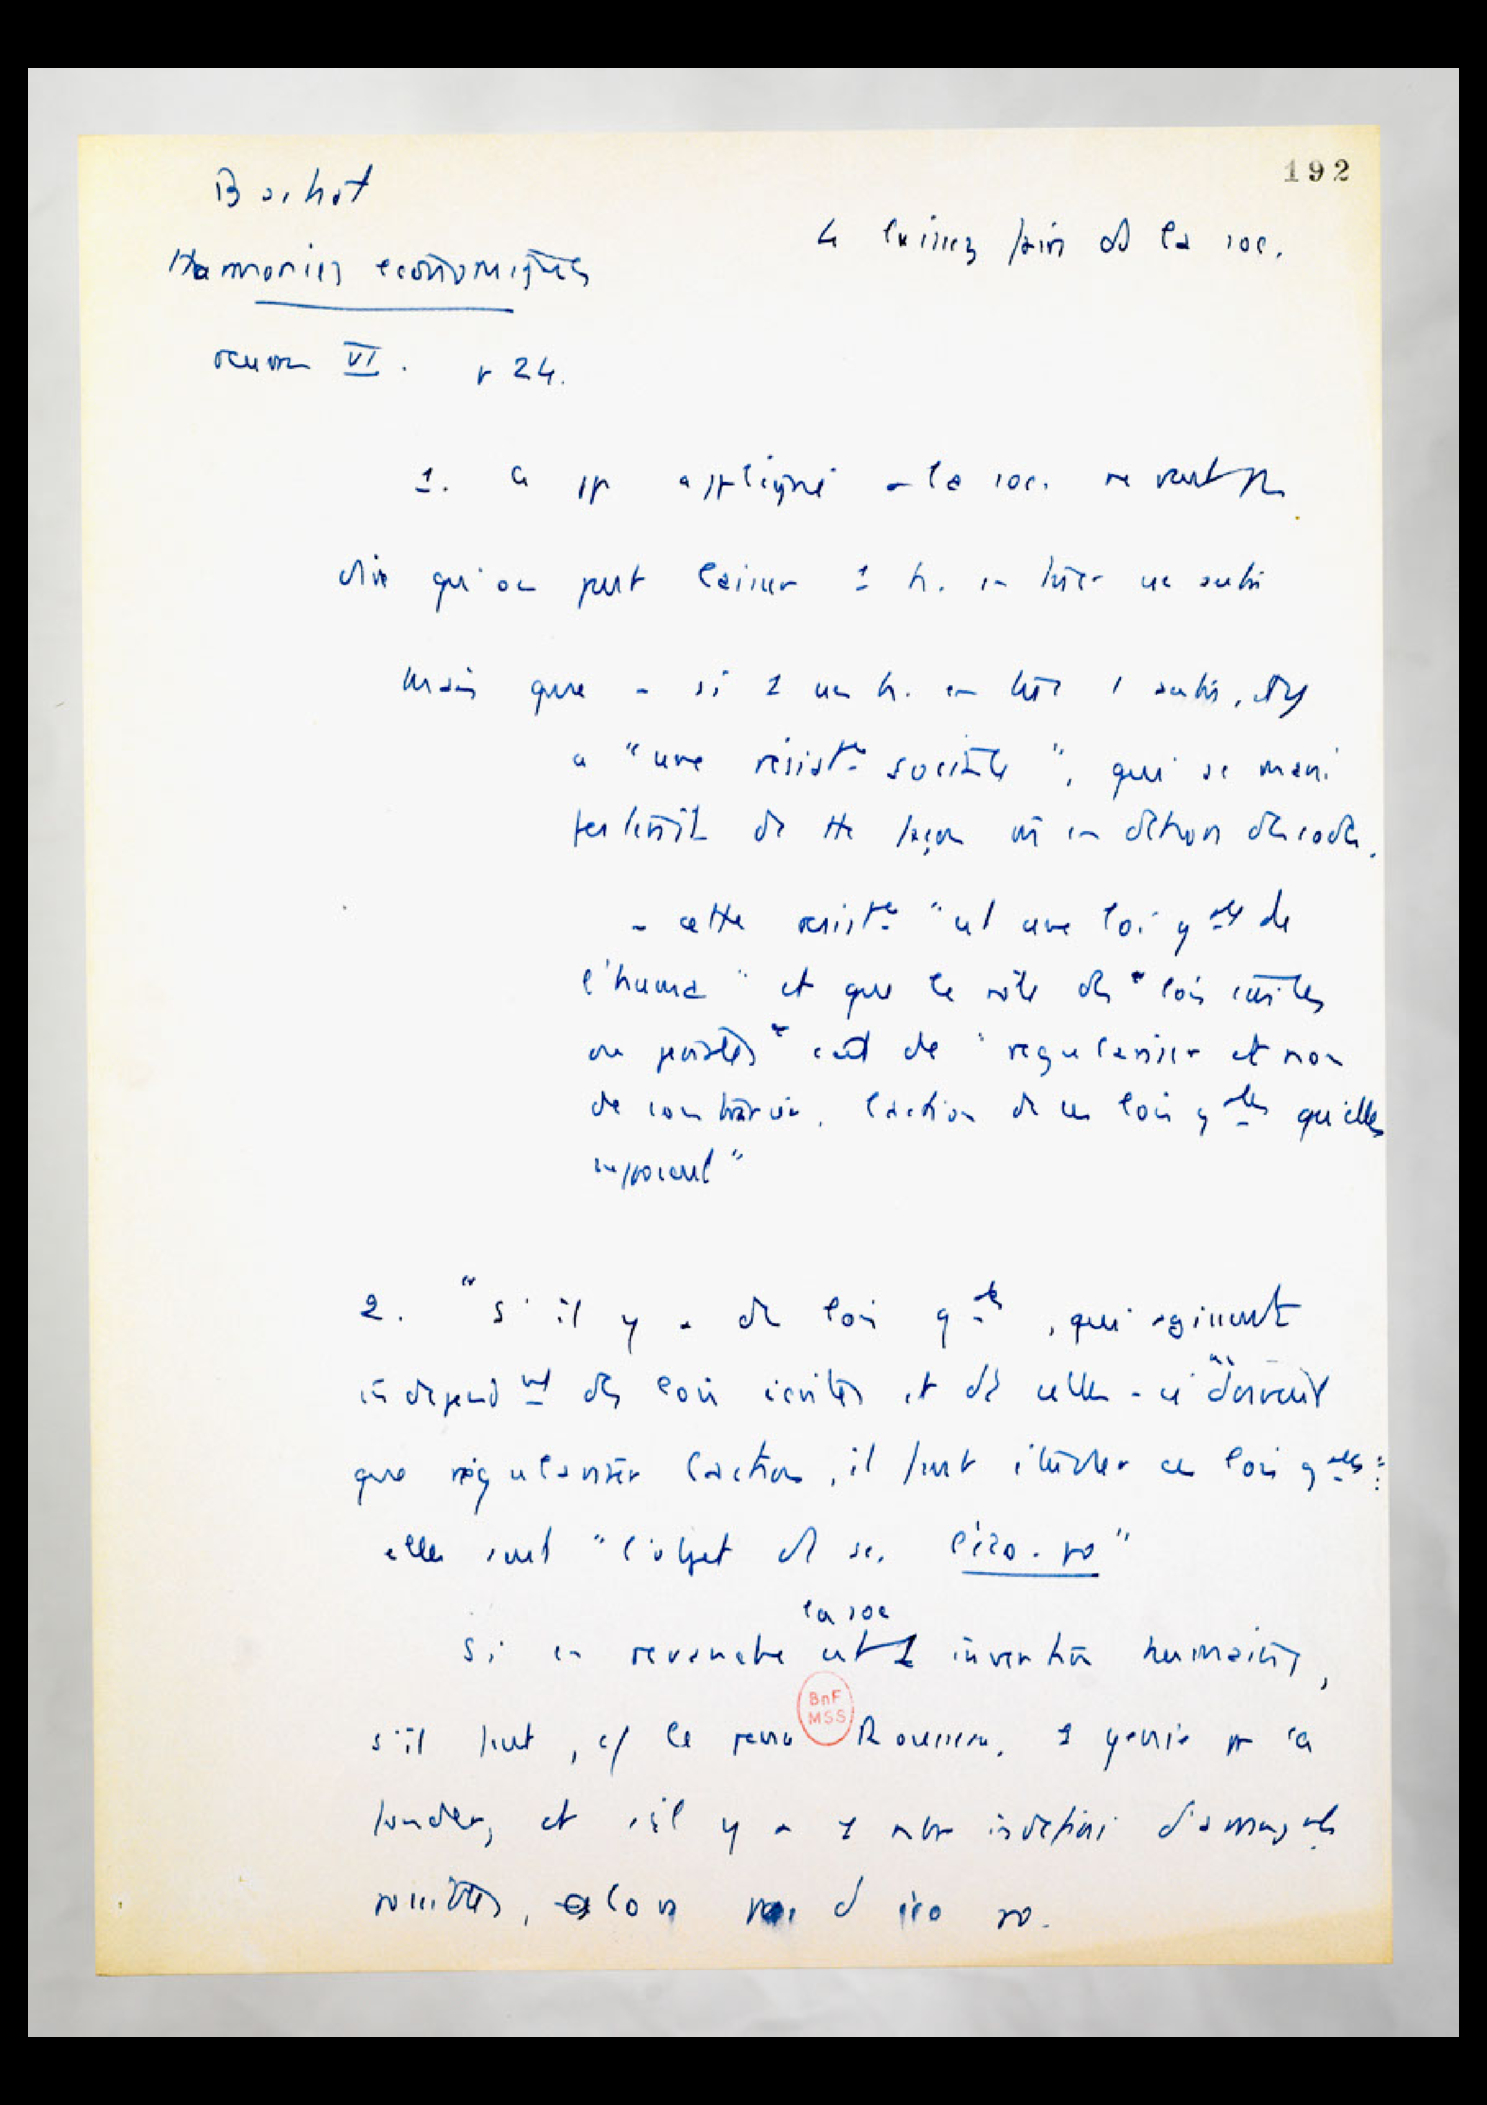 192
Bastiat
Le laissez faire et la soc.
Harmonies économiques
oeuvres VI. p 24.
1. Ce pp appliqué à la soc. ne veut pas
dire qu'on peut laisser 1 h. en tuer un autre
mais que - si 1 h. en tue 1 autre, il y
a "une résistce sociale", qui se mani
festerait de tte façon en dehors des codes.
- cette resistce "est une loi gale de
l'huma" et que le rôle des "lois écrites
ou positives" c'est de "regulariser et non
de contrarier, l'action de ces lois gales qu'elles
supposent"
2. "S'il y a des lois gales, qui agissent
independmt des lois écrites et dt celles-ci doivent
que régulariser l'action, il faut étudier ces lois gales :
elles sont "l'objet d sc. éco. po"
Si en revanche la soc est 1 invention humaine,
s'il faut, c/ le pense Rousseau, 1 génie pr la
fonder, et s'il y a 1 nbr indéfini d'arrangts
possibles, alors pas d éco po.
BnF
MSS